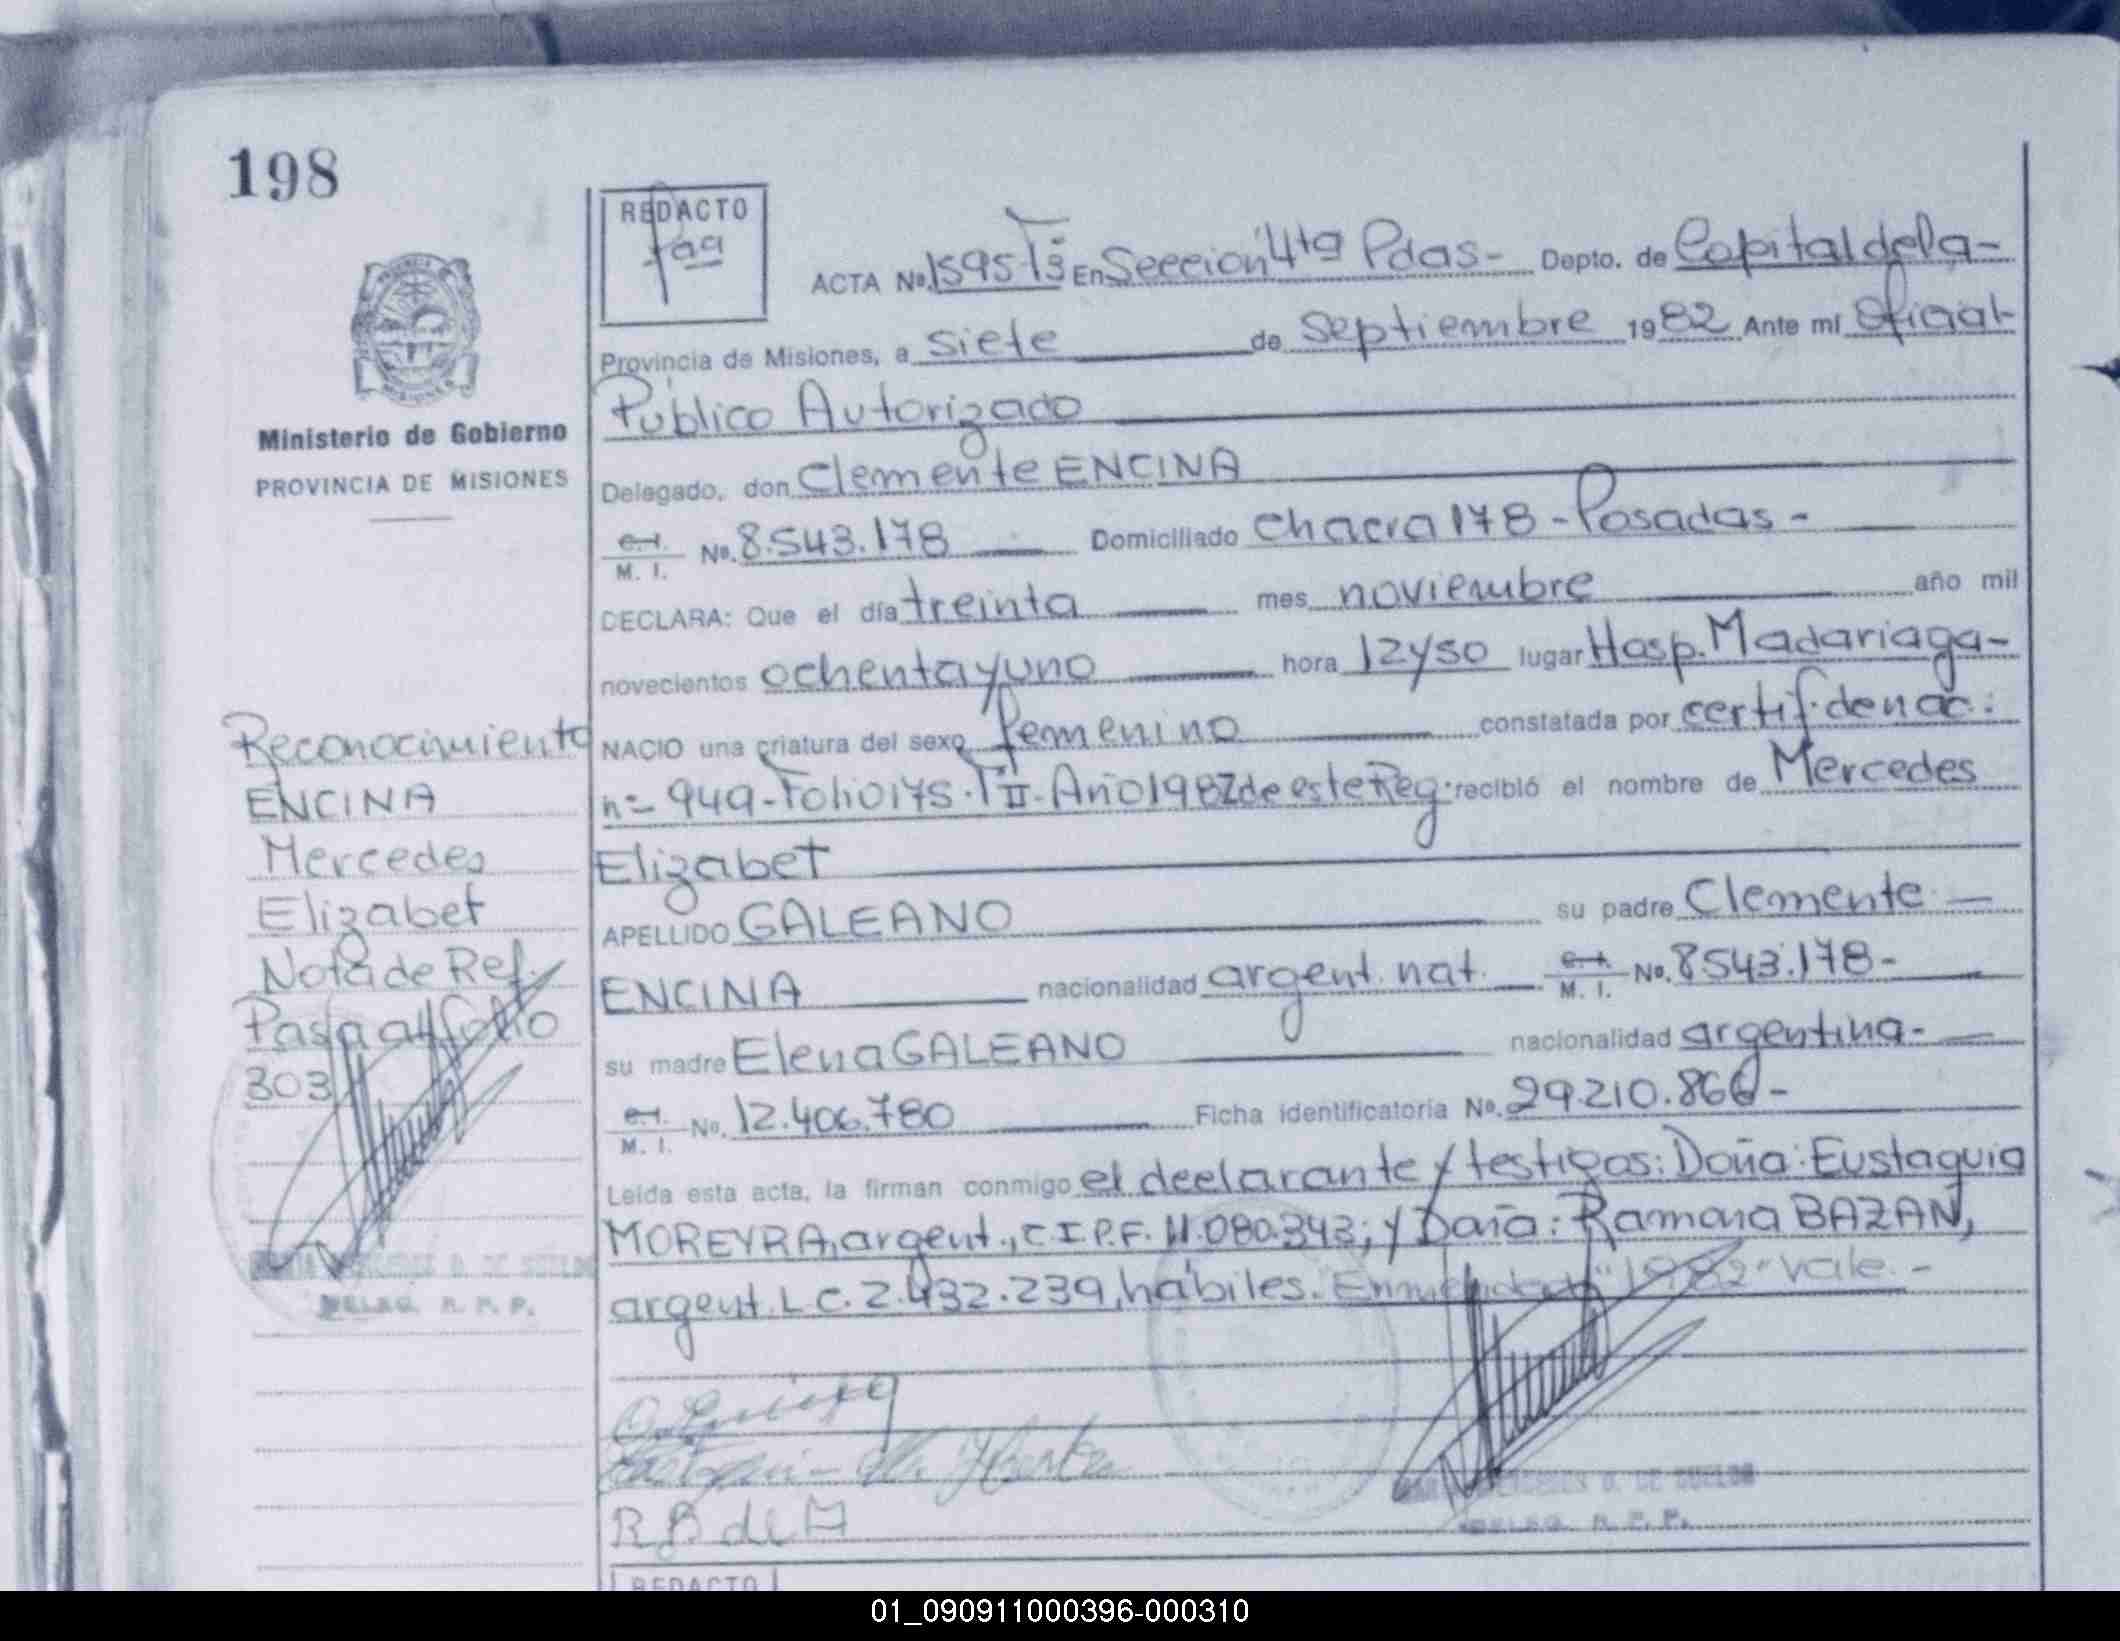 198
REDACTO
ACTA No. 1595 T3º En Seccion 4ta Pdas- Depto. de Capital de la-
Provincia de Misiones, a siete de Septiembre 1982 Ante mí Oficial
Público Autorizado
Ministerio de Gobierno
PROVINCIA DE MISIONES
Delegado, don Clemente ENCINA
C.I. M. I. No. 8.543.178 Domiciliado Chacra 178 - Posadas -
DECLARA: Que el día treinta mes noviembre año mil
novecientos ochenta y uno hora 12 y 50 lugar Hosp. Madariaga-
NACIO una criatura del sexo femenino constatada por certif. de nac:
nº 949 - Folio 175 - T II - Año 1982 de este Reg. recibió el nombre de Mercedes
Elizabet
APELLIDO GALEANO su padre Clemente
ENCINA nacionalidad argent. nat. C.I. M. I. No. 8543.178-
su madre Elena GALEANO nacionalidad argentina-
C.I. M. I. No. 12.406.780 Ficha identificatoria No. 29.210.866-
Leída esta acta, la firman conmigo el declarante y testigos: Doña: Eustaquia
MOREYRA, argent., C.I.P.F. 11.080.343; y Doña: Ramona BAZAN,
argent. L.C. 2.432.239, hábiles. Enmendado "1982" vale.-
R B de M
Reconocimiento
ENCINA
Mercedes
Elizabet
Nota de Ref.
Pasa al folio
303
DELEG. R. P. P.
DELEG. R. P. P.
REDACTO
01_090911000396-000310